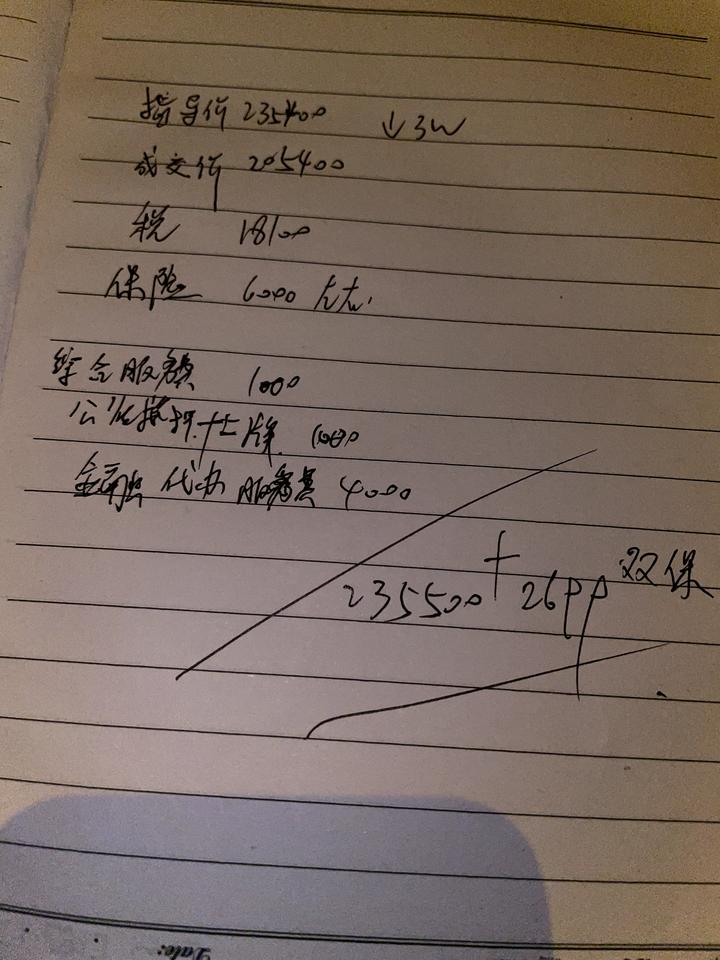 指导价 235400 ↓3W
成交价 205400
税 18100
保险 6000 左右
综合服务费 1000
公证抵押+上牌 1000
金融代办服务费 4000
235500 + 2600 双保
Date: